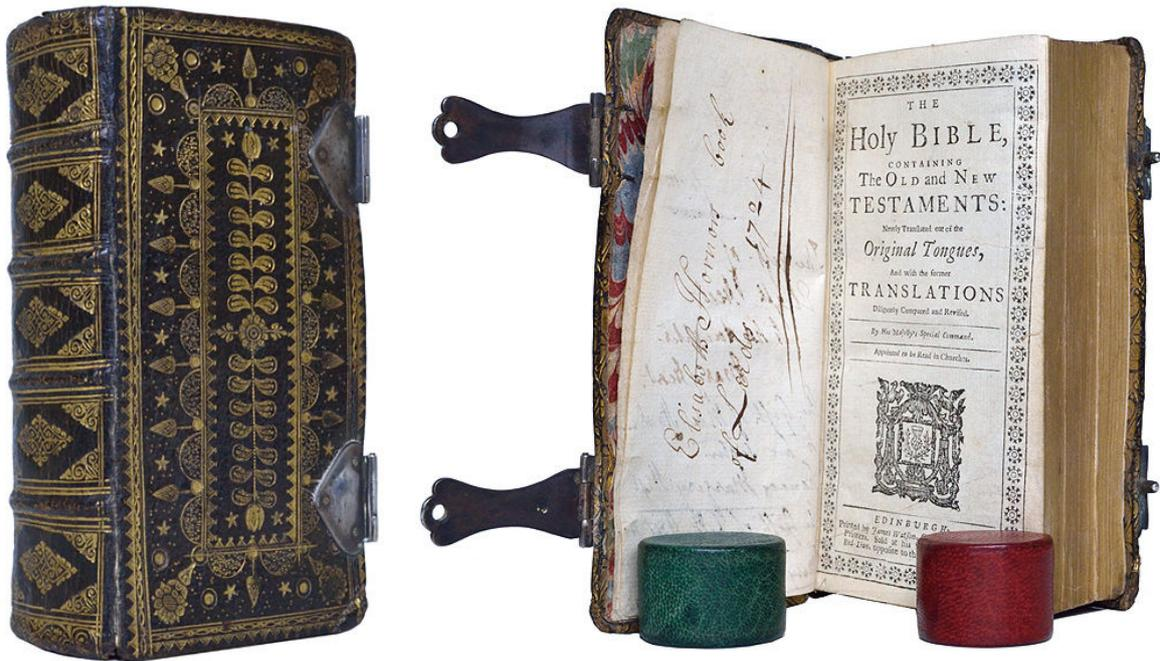 Elisabeth Thornton book
of Leeds 1724
THE
Holy BIBLE,
CONTAINING
The OLD and NEW
TESTAMENTS:
Newly Translated out of the
Original Tongues,
And with the former
TRANSLATIONS
Diligently Compared and Revised.
By His Majesty's Special Command.
Appointed to be Read in Churches.
EDINBURGH:
Printed by James Watson
Printers. Sold at his
Red-Lion, opposite to the